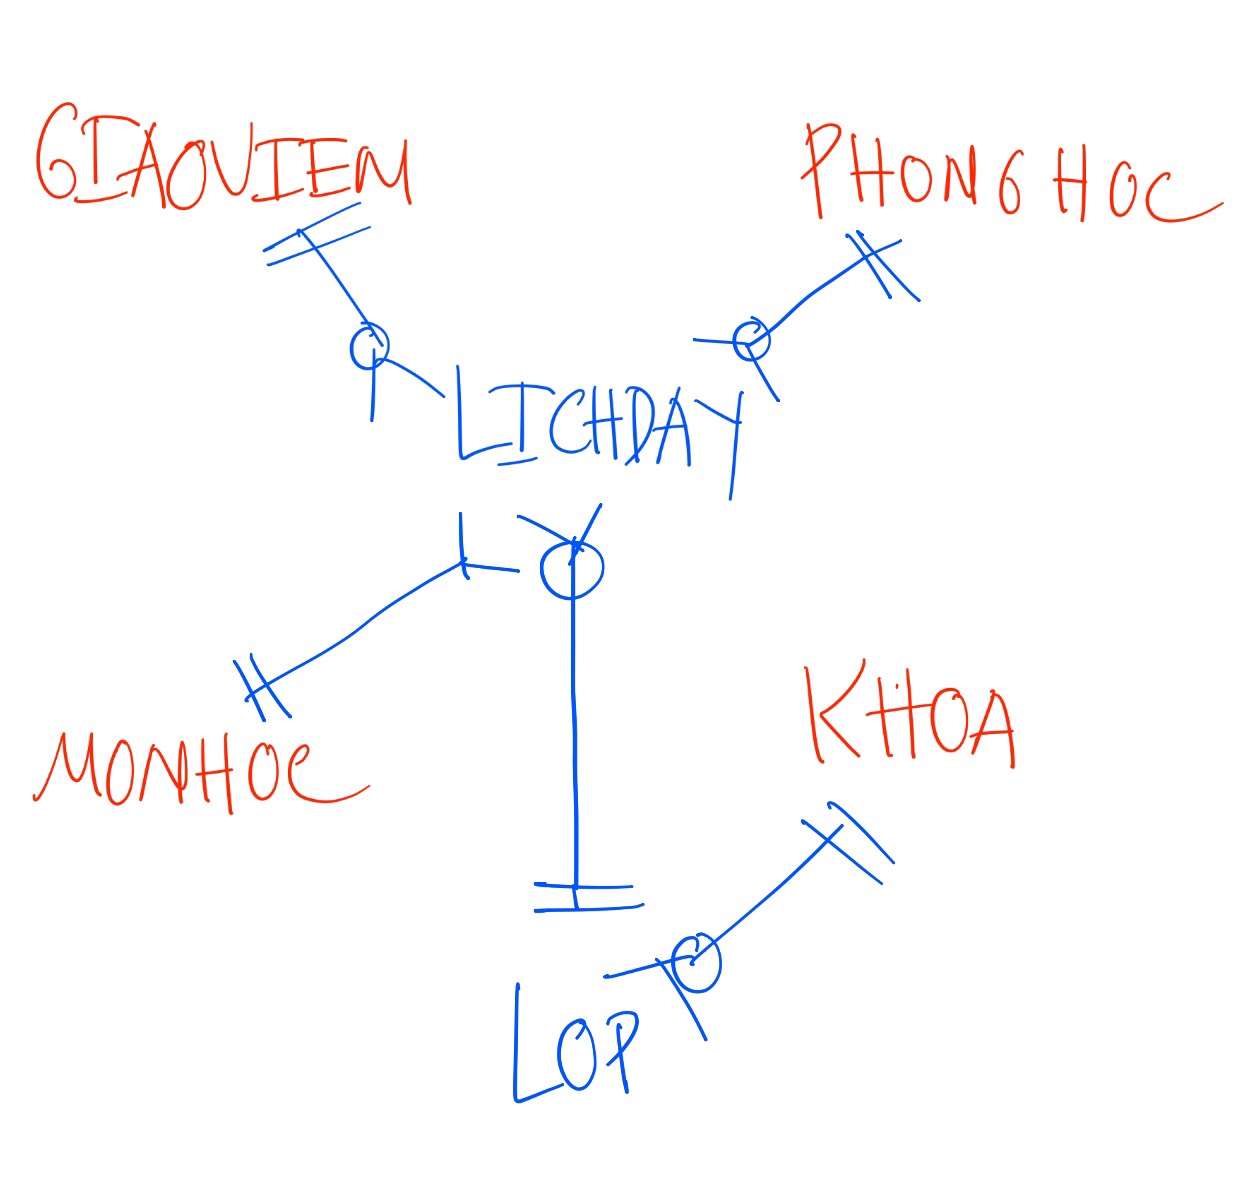 GIAOVIEN
PHONGHOC
LICHDAY
MONHOC
KHOA
LOP